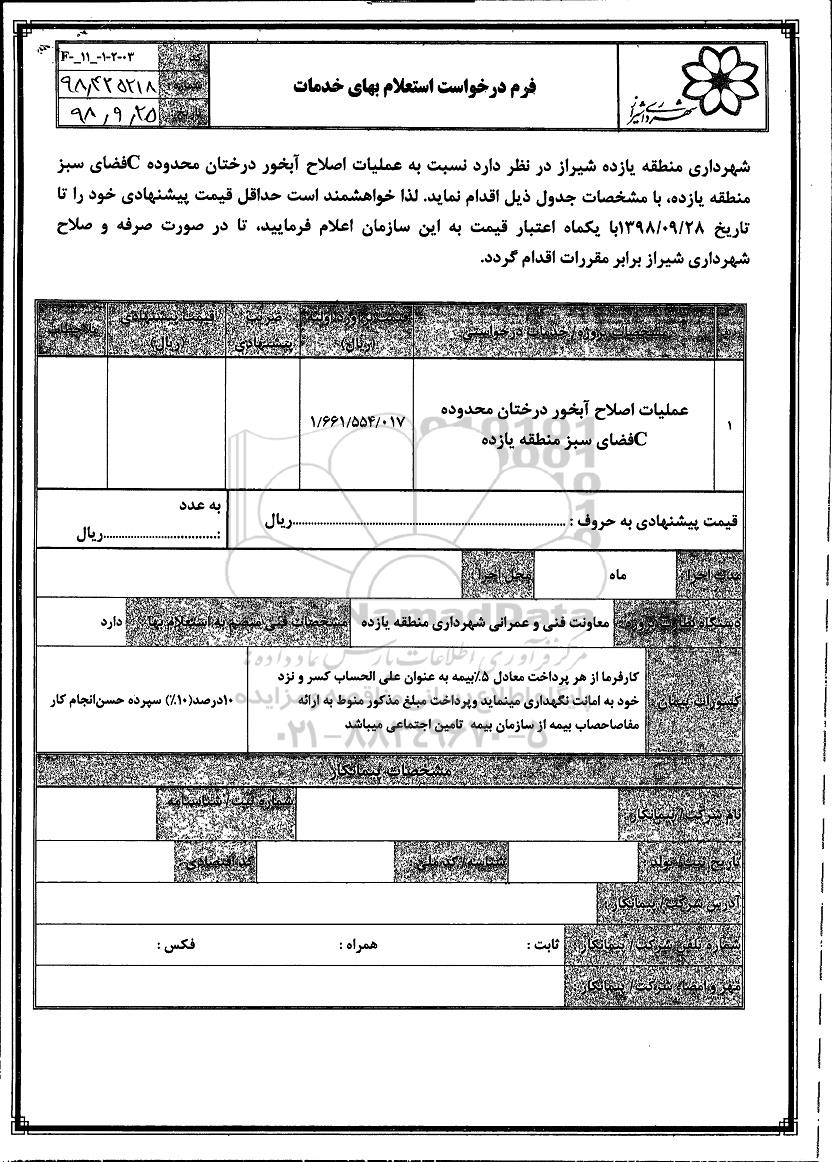 کد :
F-_11_-۱-۲-۰۳
۹۸,۴۲۵۲۱۸
۹۸,۹,۲۵
فرم درخواست استعلام بهای خدمات
شهرداری شیراز
شهرداری منطقه یازده شیراز در نظر دارد نسبت به عملیات اصلاح آبخور درختان محدوده Cفضای سبز
منطقه یازده، با مشخصات جدول ذیل اقدام نماید. لذا خواهشمند است حداقل قیمت پیشنهادی خود را تا
تاریخ ۱۳۹۸/۰۹/۲۸با یکماه اعتبار قیمت به این سازمان اعلام فرمایید، تا در صورت صرفه و صلاح
شهرداری شیراز برابر مقررات اقدام گردد.
مشخصات پروژه/خدمات درخواستی
قیمت برآورد اولیه (ریال)
ضریب پیشنهادی
قیمت پیشنهادی (ریال)
ملاحظات
۱
عملیات اصلاح آبخور درختان محدوده
Cفضای سبز منطقه یازده
۱/۶۶۱/۵۵۴/۰۱۷
قیمت پیشنهادی به حروف : ..........ریال
به عدد
:..........ریال
مدت اجرا
ماه
محل اجرا
دستگاه نظارت پروژه
معاونت فنی و عمرانی شهرداری منطقه یازده
مشخصات فنی منضم به استعلام بها
دارد
کسورات پیمان
کارفرما از هر پرداخت معادل ۵٪بیمه به عنوان علی الحساب کسر و نزد
خود به امانت نگهداری مینماید وپرداخت مبلغ مذکور منوط به ارائه
مفاصاحصاب بیمه از سازمان بیمه تامین اجتماعی میباشد
۱۰درصد(۱۰٪) سپرده حسن‌انجام کار
مشخصات پیمانکار
نام شرکت/ پیمانکار
شماره ثبت/ شناسنامه
تاریخ ثبت/تولد
شناسه/ کد ملی
کد اقتصادی
آدرس شرکت/ پیمانکار
شماره تلفن شرکت/ پیمانکار
ثابت :
همراه :
فکس :
مهر و امضاء شرکت/ پیمانکار
NamadData
مرکز فرآوری اطلاعات پارس نماد داده ها
پایگاه اطلاع رسانی مناقصه و مزایده
۰۲۱-۸۸۳۴۹۶۷۰-۵